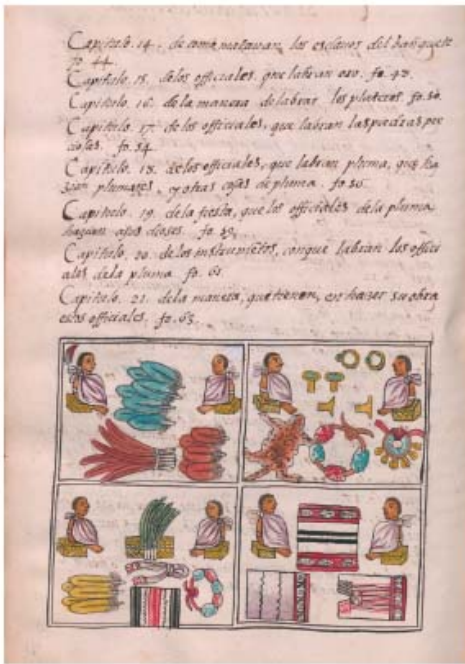 Capitulo. 14. de como matauan los esclauos del banquete
fo. 44.
Capitulo. 15. delos officiales, que labran oro. fo. 48.
Capitulo. 16. de la manera de labrar los plateros fo. 50.
Capitulo. 17. de los officiales, que labran las piedras pre
ciosas. fo. 54.
Capitulo. 18. de los officiales, que labran pluma, que ha
zian plumages, y otras cosas de pluma. fo. 56.
Capitulo. 19. de la fiesta, que los officiales de la pluma
hazian a sus dioses. fo. 59.
Capitulo. 20. de los instrumētos, conque labran los offici
ales dela pluma fo. 61.
Capitulo. 21. dela manera, que tienen, en hazer su obra
estos officiales. fo. 63.